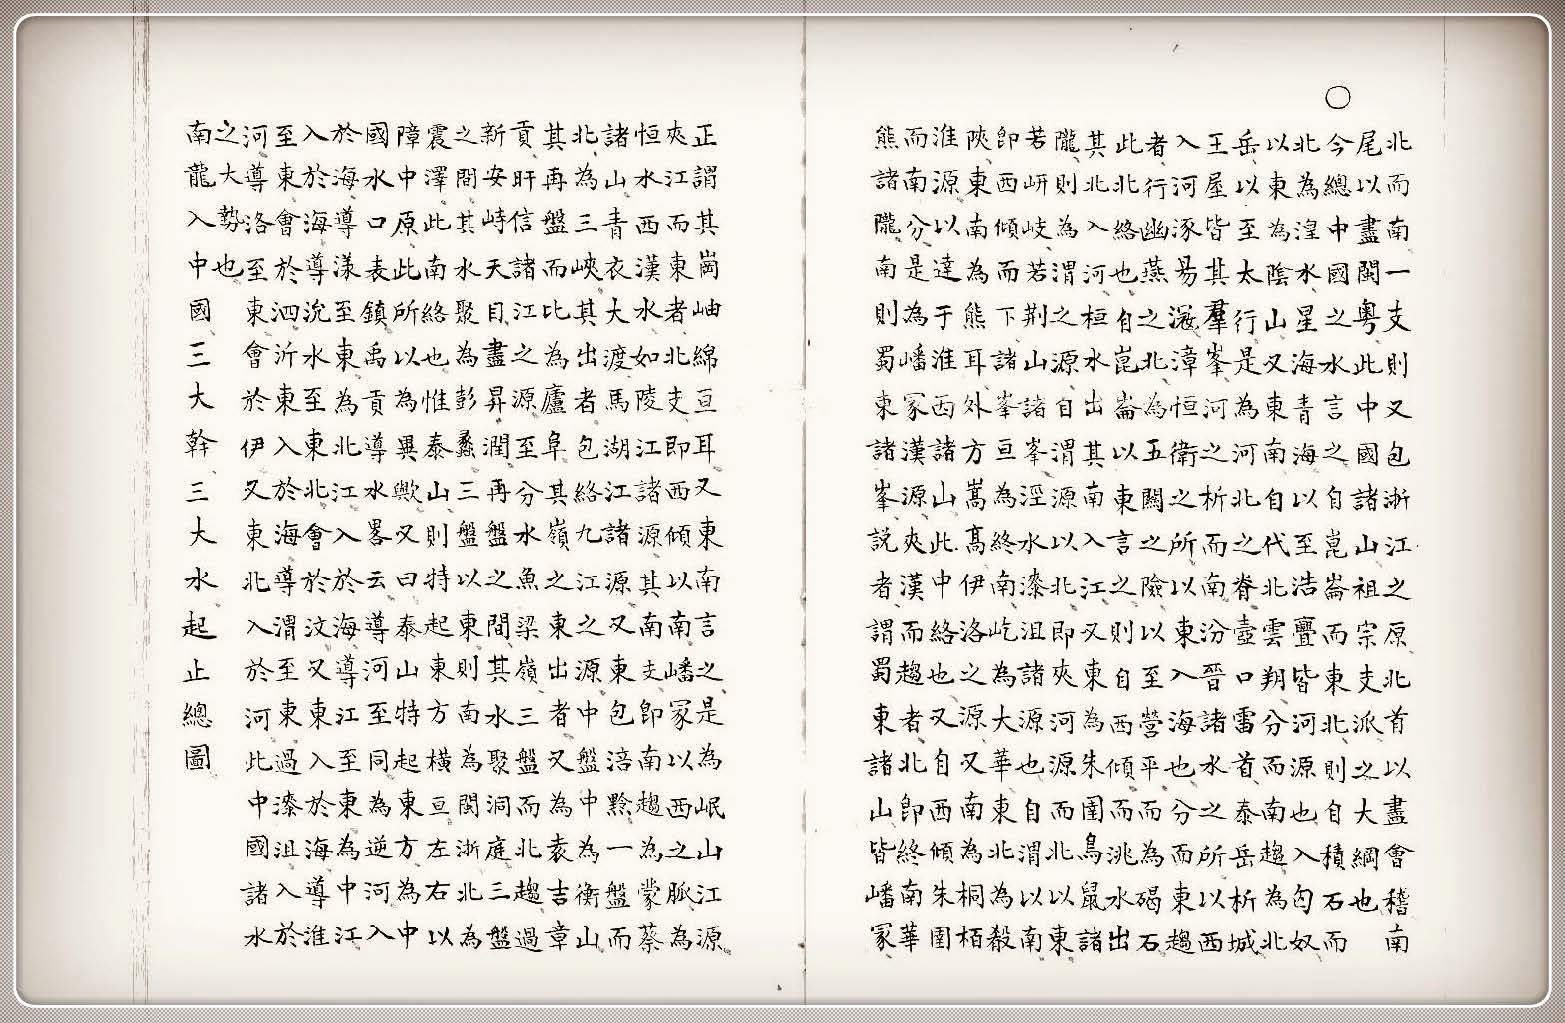 北而南一支則又包浙江之原北首以盡會稽南
尾以盡閩粵此中國諸山祖宗支派之大綱也
今總中國之水言之自崑崙而東北則自積石而
北為湟水星海青海以至浩亹皆河源也入匈奴
以東為陰山又東南自代北雲朔分而南趨為北
岳以至太行是為河北之脊壺口雷首泰岳析城
王屋皆其羣峯河之析而南汾晉諸水之所以西
入河涿易滋漳恒衛之所以東入海也分而東趨
者行幽燕之北為五關之險以至營平而為碣石
此北絡也自崑崙以東言之則自西傾而洮水出
其北入河桓水出其南入江又東為朱圉鳥鼠諸
隴則為渭之源自渭源以北即夾河源而北以東
若岍岐若荆山諸峯涇水漆沮諸源也自渭以南
即西傾而下諸峯亘為終南屹為大華東北為殽
陝東南為熊耳外方嵩高伊洛之源又南為桐栢
淮源以達于淮西諸山此中絡也又自西傾朱圉
而南分是為嶓冢漢源夾漢而趨者北即終南華
熊諸隴南則蜀東諸峯説者謂蜀東諸山皆嶓冢
正謂其崗岫綿亘耳又東南言之是為岷山江源
夾江而東者北支即西傾以南嶓冢以西之脈為
恒水西漢水如陵江諸源其南支即南趨為蒙蔡
諸山青衣大渡馬湖江諸源又東包涪黔一盤而
北為三峽其出者包絡九江之源中盤中為衡山
其再盤而比為廬阜其嶺之東出者又為袁吉章
貢盱信諸江之源至分水魚梁嶺三盤而北趨過
新安峙天目盡昇潤再盤之間其水聚洞庭三盤
之閤其水聚為彭蠡三盤以東則南為閩浙北為
震澤此南絡也惟泰山則特起東方橫亘左右以
障中原此所以為異歟又曰泰山特起東方為中
國水口表鎮禹貢導水畧云導河至同為逆河入
於海導漾至東為北江入於海導江至東為中江
入於海導沇水至東北會於汶又東入於海導淮
至東會於泗沂東入於海導渭至東過漆沮入於
河導洛至東會於伊又東北入於河此中國諸水
之大勢也
南龍入中國三大幹三大水起止總圖